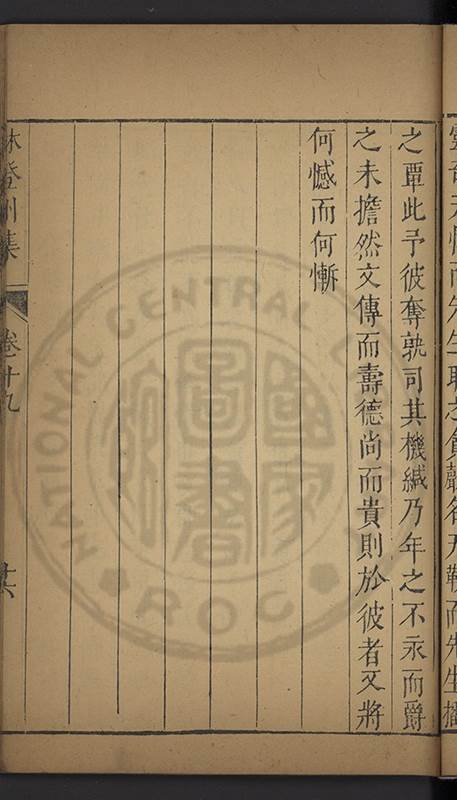 之覃此予彼奪孰司其機緘乃年之不永而爵
之未擔然文傳而壽德尚而貴則於彼者又將
何憾而何慚
卷十九
NATIONAL CENTRAL
ROC
國家圖書